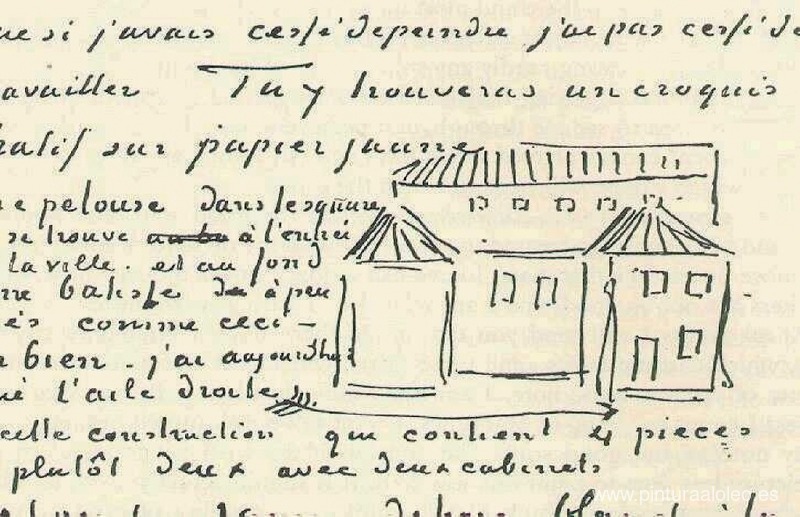 que si j'avais cessé de peindre j'ai pas cessé de
travailler Tu y trouveras un croquis
hatif sur papier jaune
une pelouse dans le square
se trouve à l'entrée
la ville et au fond
une batisse à peu
près comme ceci
bien. j'ai aujourdhui
l'aile droite
cette construction qui contient 4 pieces
plutôt deux avec deux cabinets
www.pinturaaloleo.es